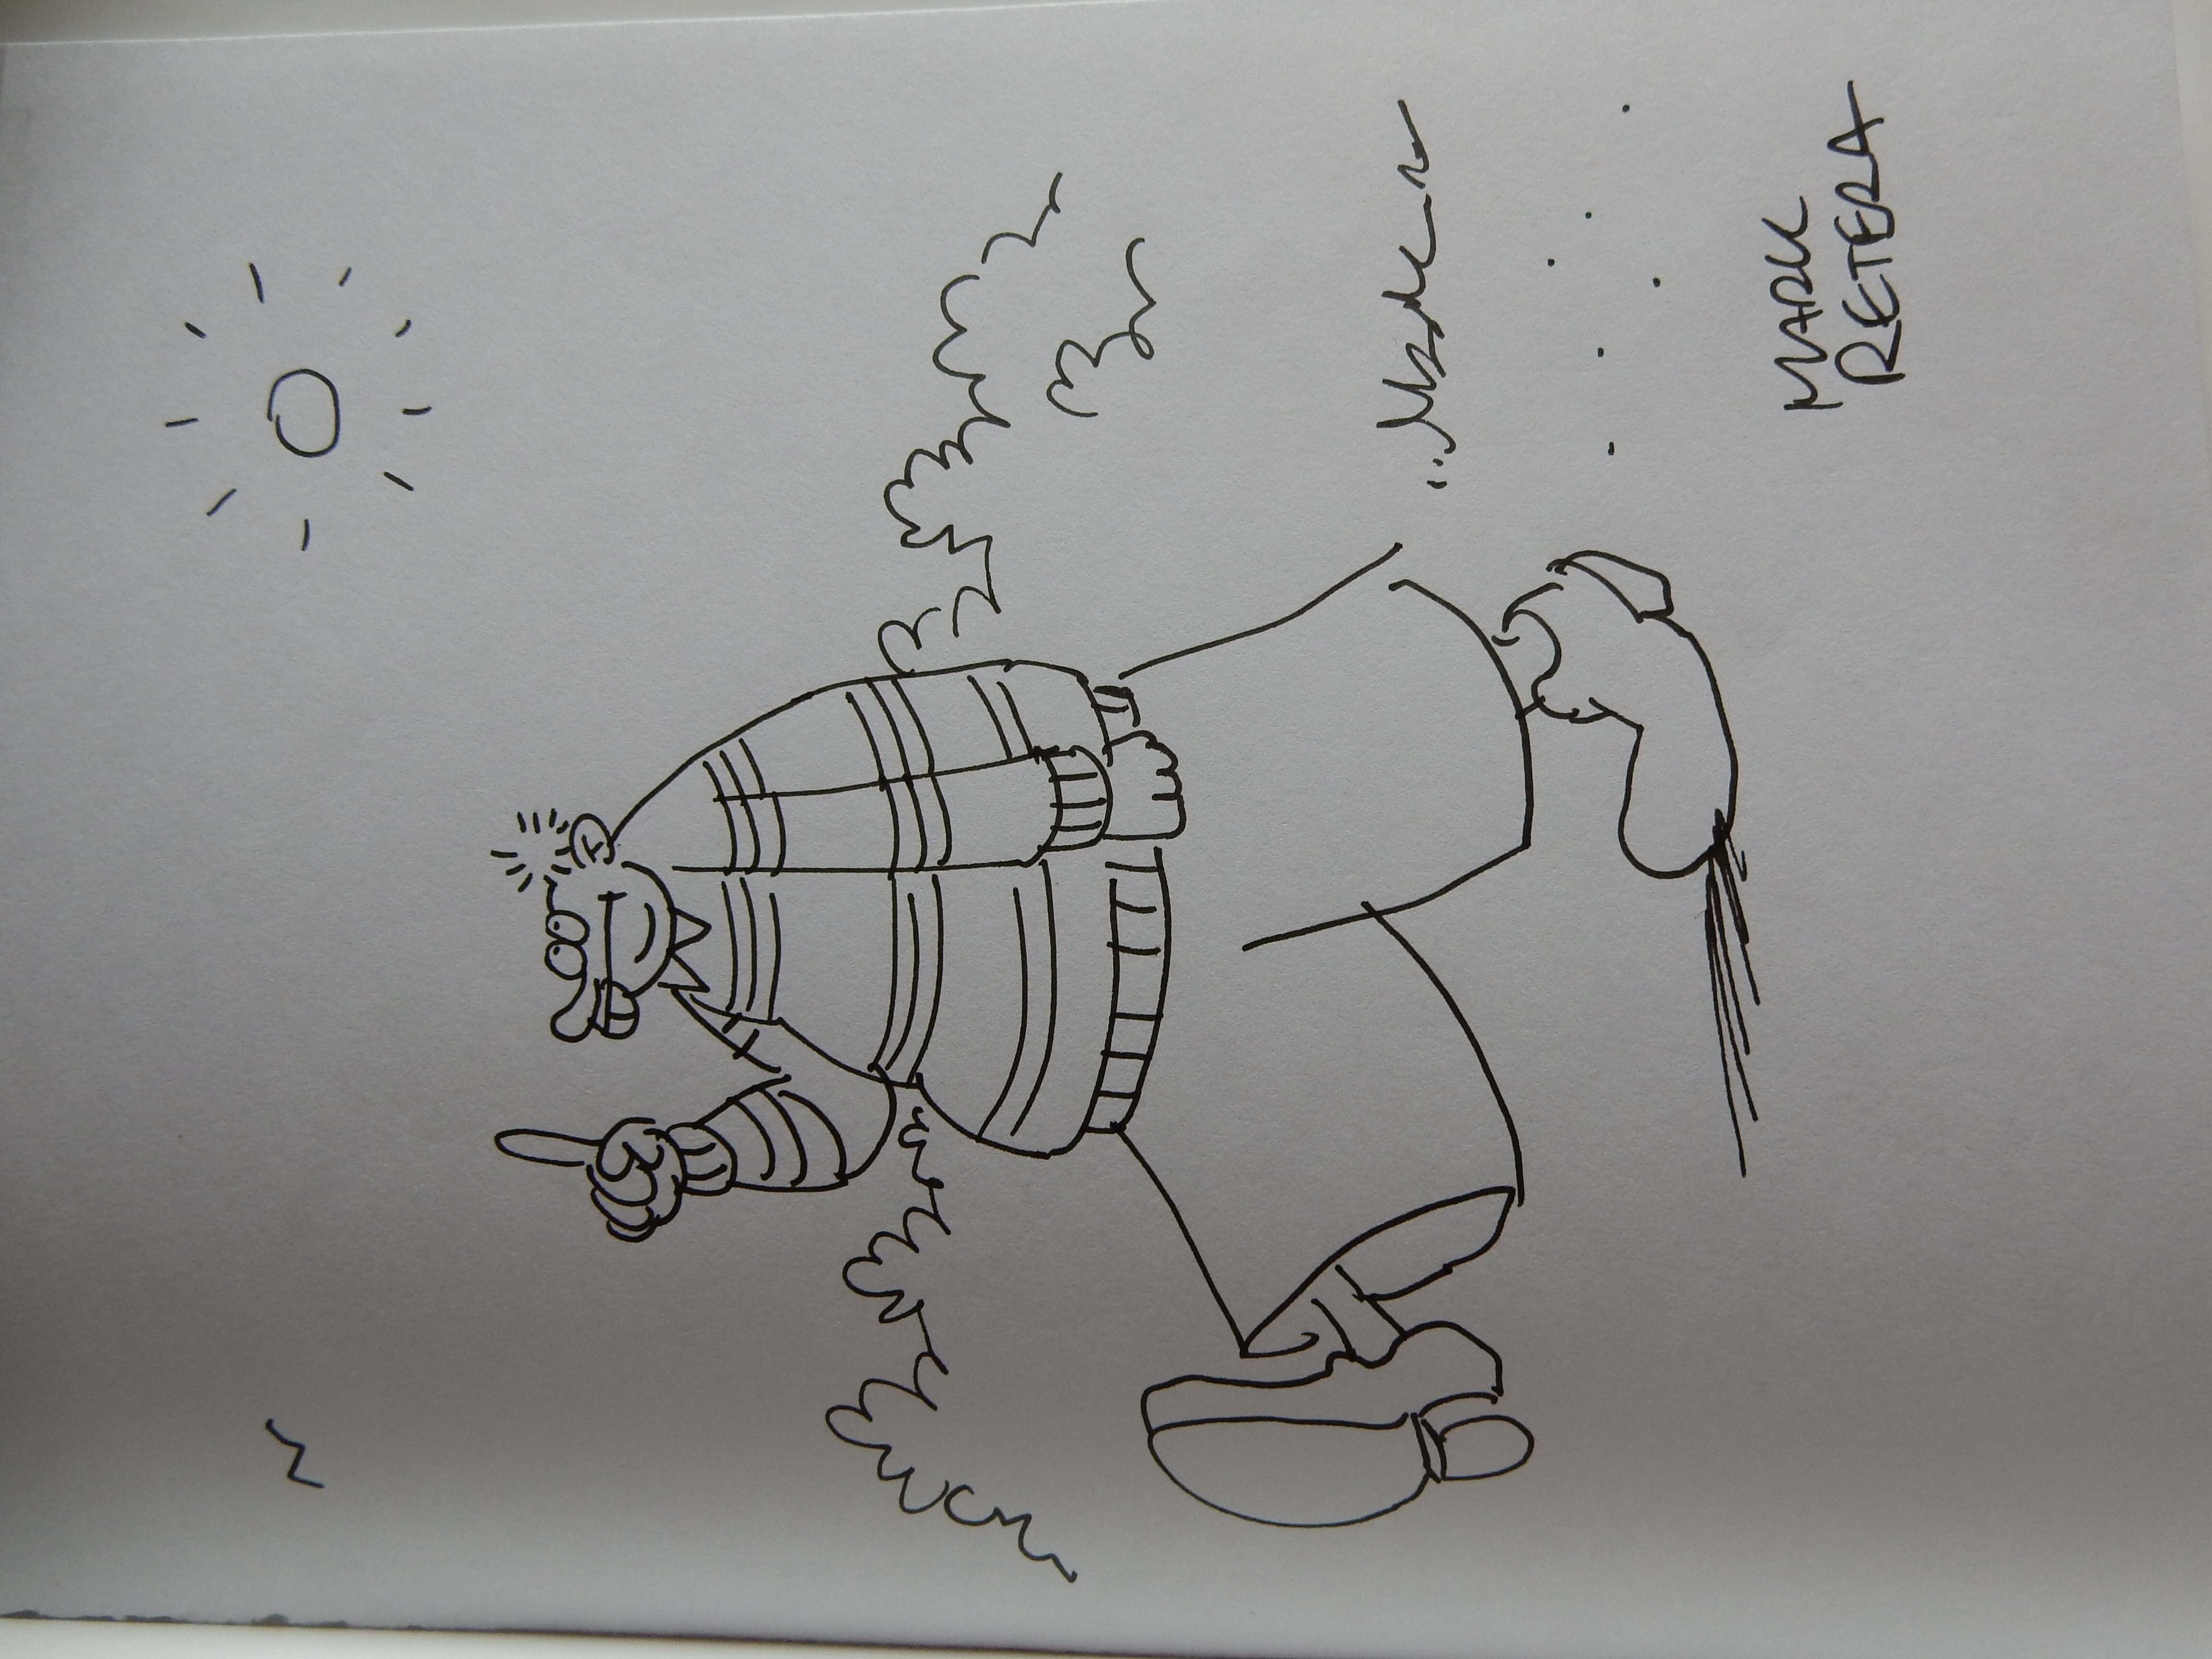 MARK
RETERA